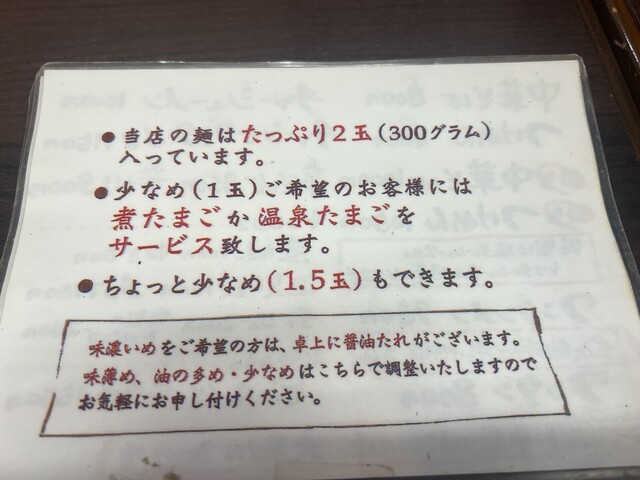 ●当店の麺はたっぷり2玉(300グラム)
入っています。
●少なめ(1玉)ご希望のお客様には
煮たまごか温泉たまごを
サービス致します。
●ちょっと少なめ(1.5玉)もできます。
味濃いめをご希望の方は、卓上に醤油たれがございます。
味薄め、油の多め・少なめはこちらで調整いたしますので
お気軽にお申し付けください。